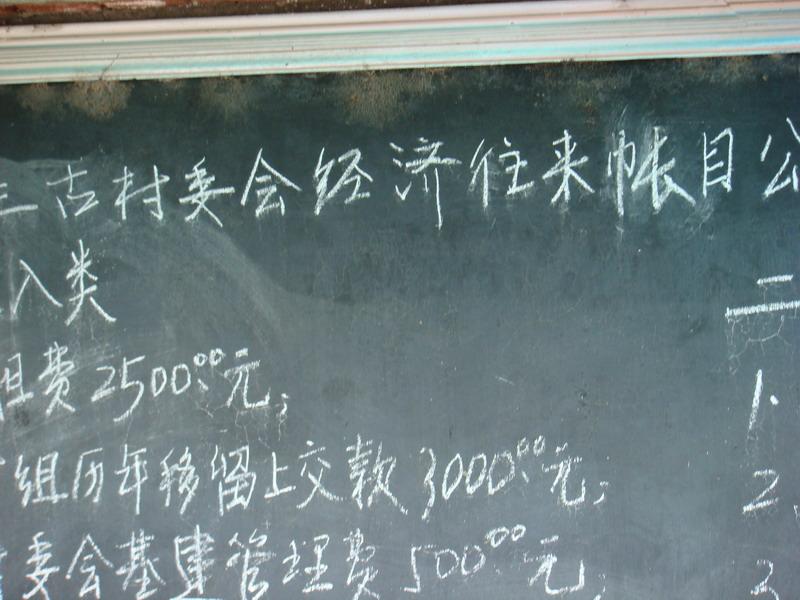 三古村委会经济往来帐目公
入类
租费2500.00元;
组历年移留上交款3000.00元;
委会基建管理费500.00元;
二
1.
2.
3